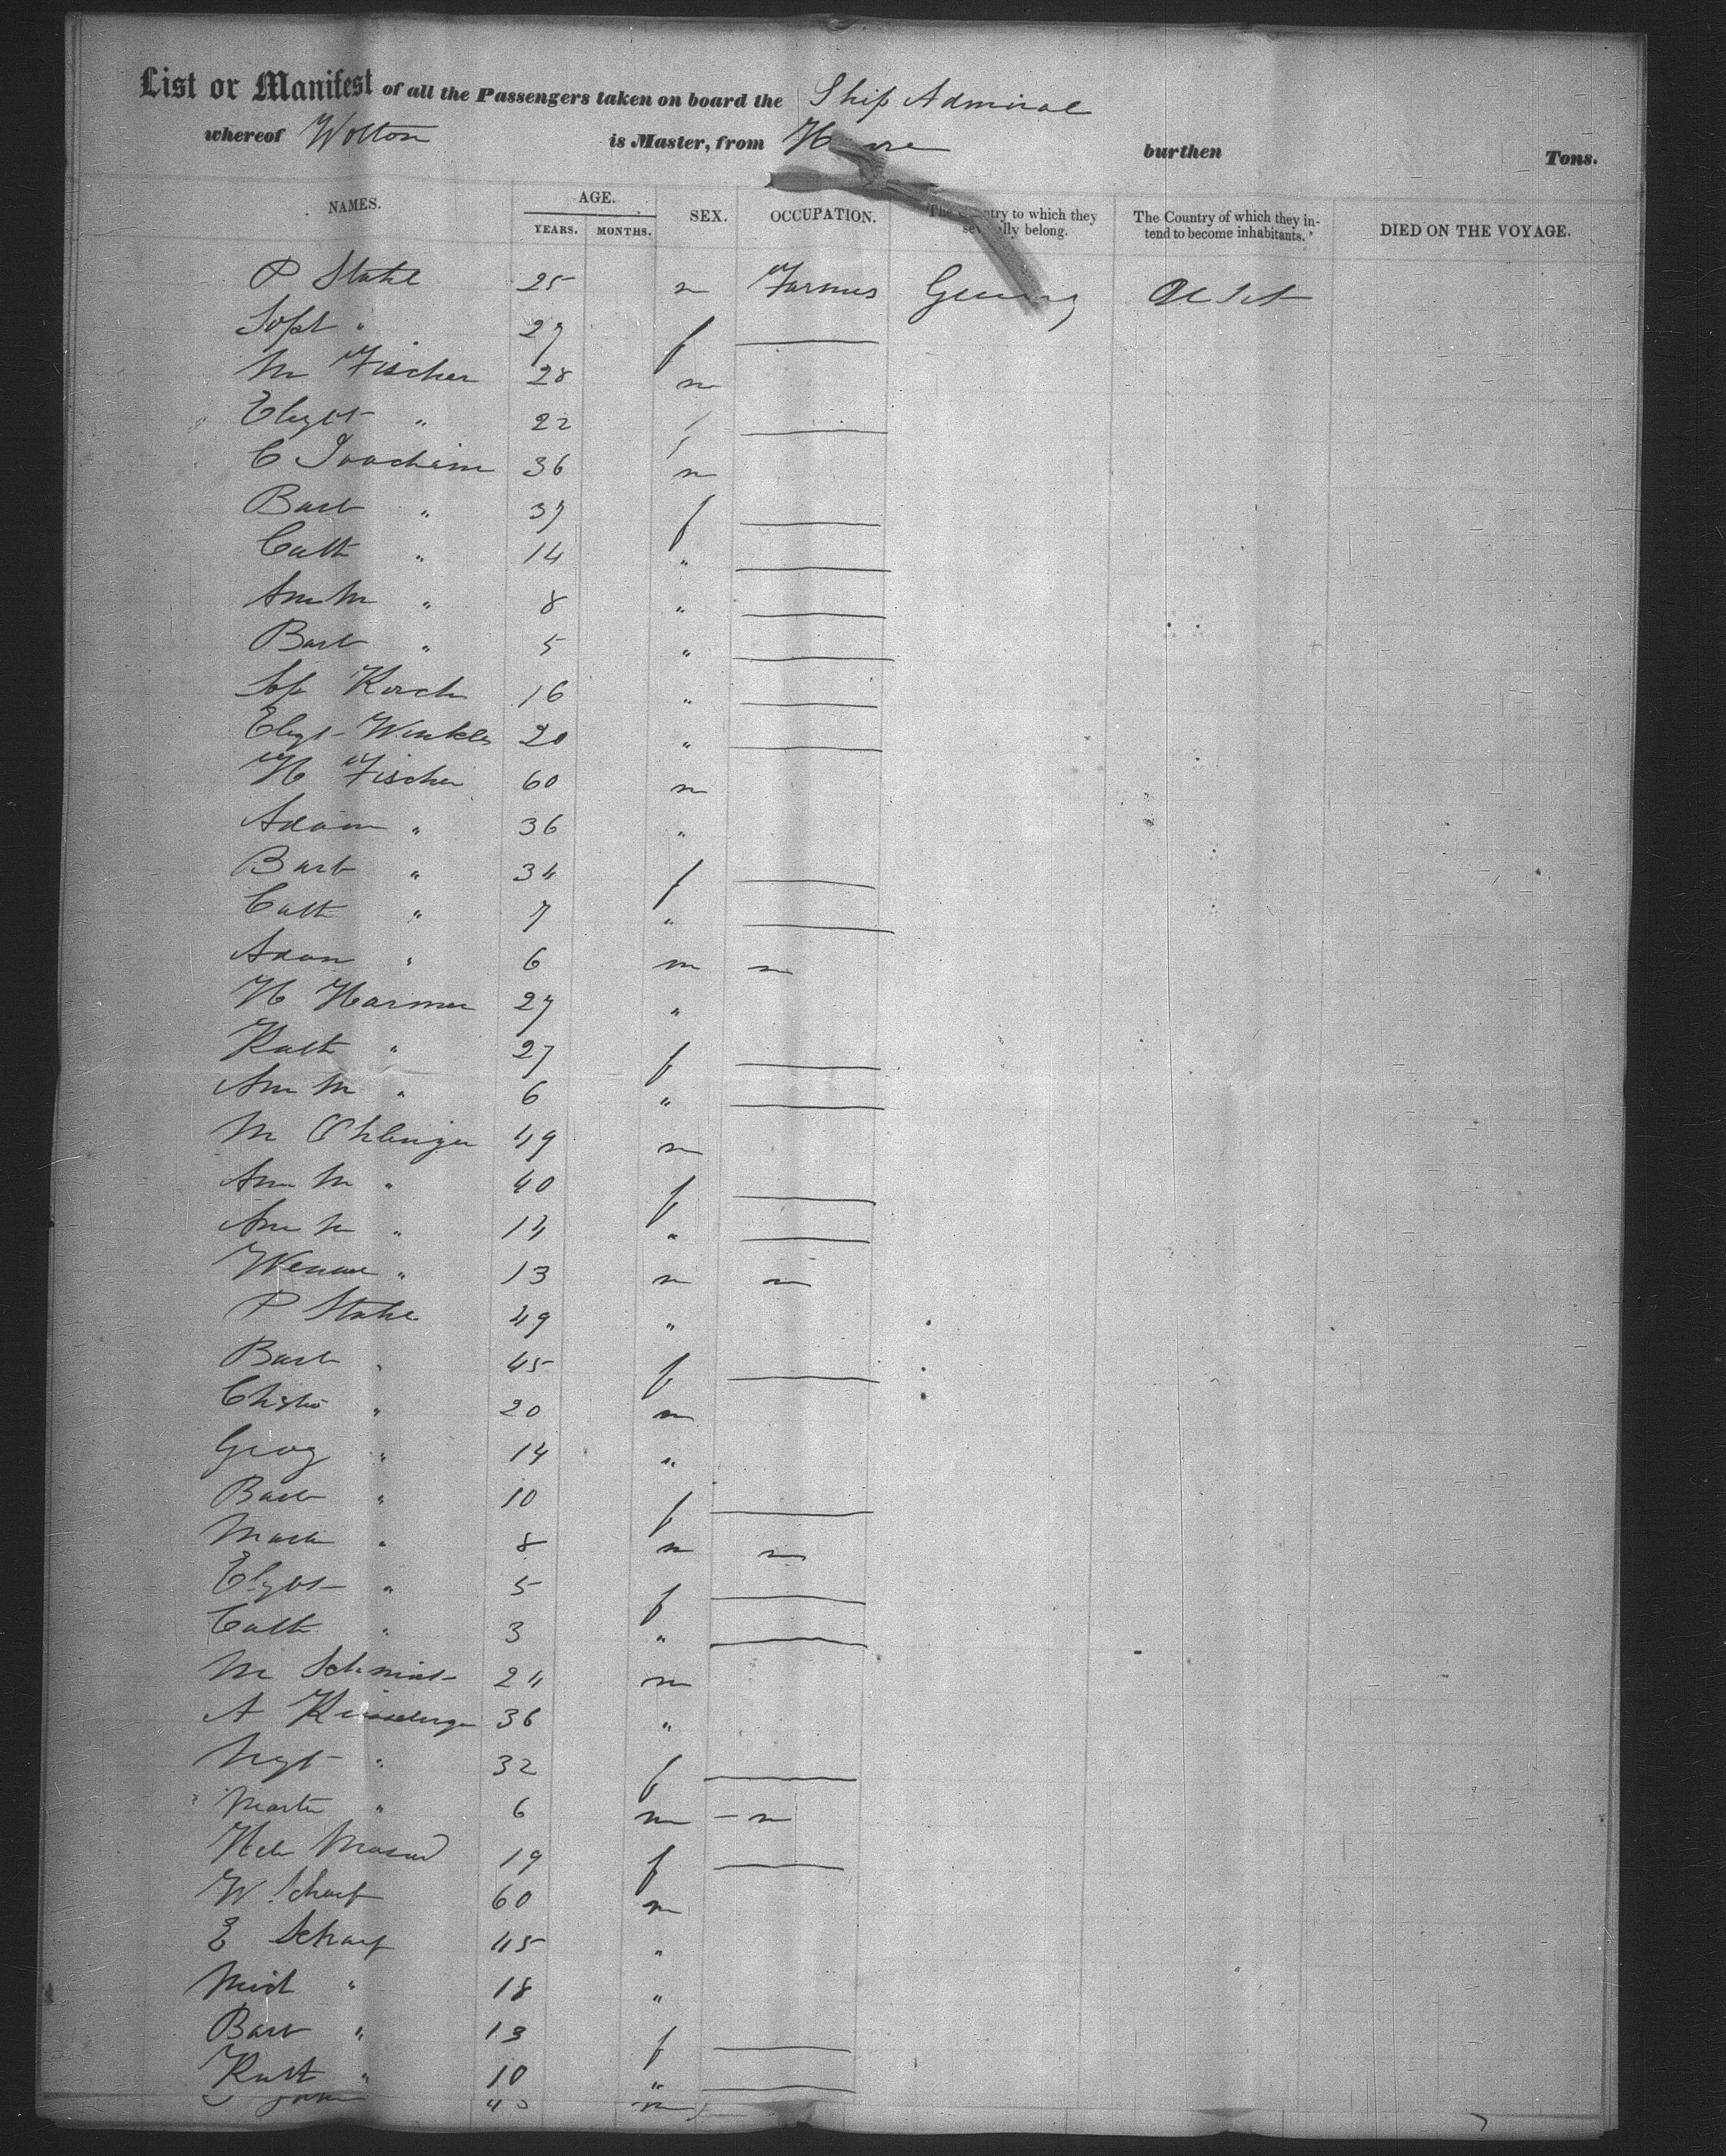 List or Manifest of all the Passengers taken on board the Ship Admiral
whereof Wolton is Master, from Havre burthen Tons.
NAMES. AGE. YEARS. MONTHS. SEX. OCCUPATION. The Country to which they severally belong. The Country of which they intend to become inhabitants. DIED ON THE VOYAGE.
P Stahl 25 m Farmers Germany U St
Soph " 27 f
M Fischer 28 m
Elizbt " 22 f
C Joachim 36 m
Barb " 37 f
Cath " 14 "
Ann M " 8 "
Barb " 5 "
Soph Koch 16 "
Elizt Winkler 20 "
H Fischer 60 m
Adam " 36 "
Barb " 34 f
Cath " 7 "
Adam " 6 m m
H Harmer 27 "
Kath " 27 f
Ann M " 6 "
M Ohlinger 49 m
Ann M " 40 f
Ann M " 14 "
" 13 m m
P Stahl 49 "
Barb " 45 f
Christ " 20 m
Georg " 14 "
Barb " 10 f
" 8 m m
Elizbt " 5 f
Cath " 3 "
M Schmidt 24 m
A 36 "
" 32 f
Martin " 6 m - m
19 f
W Scharf 60 m
E Scharf 45 "
" 18 "
Barb " 13 f
Kath " 10 "
m